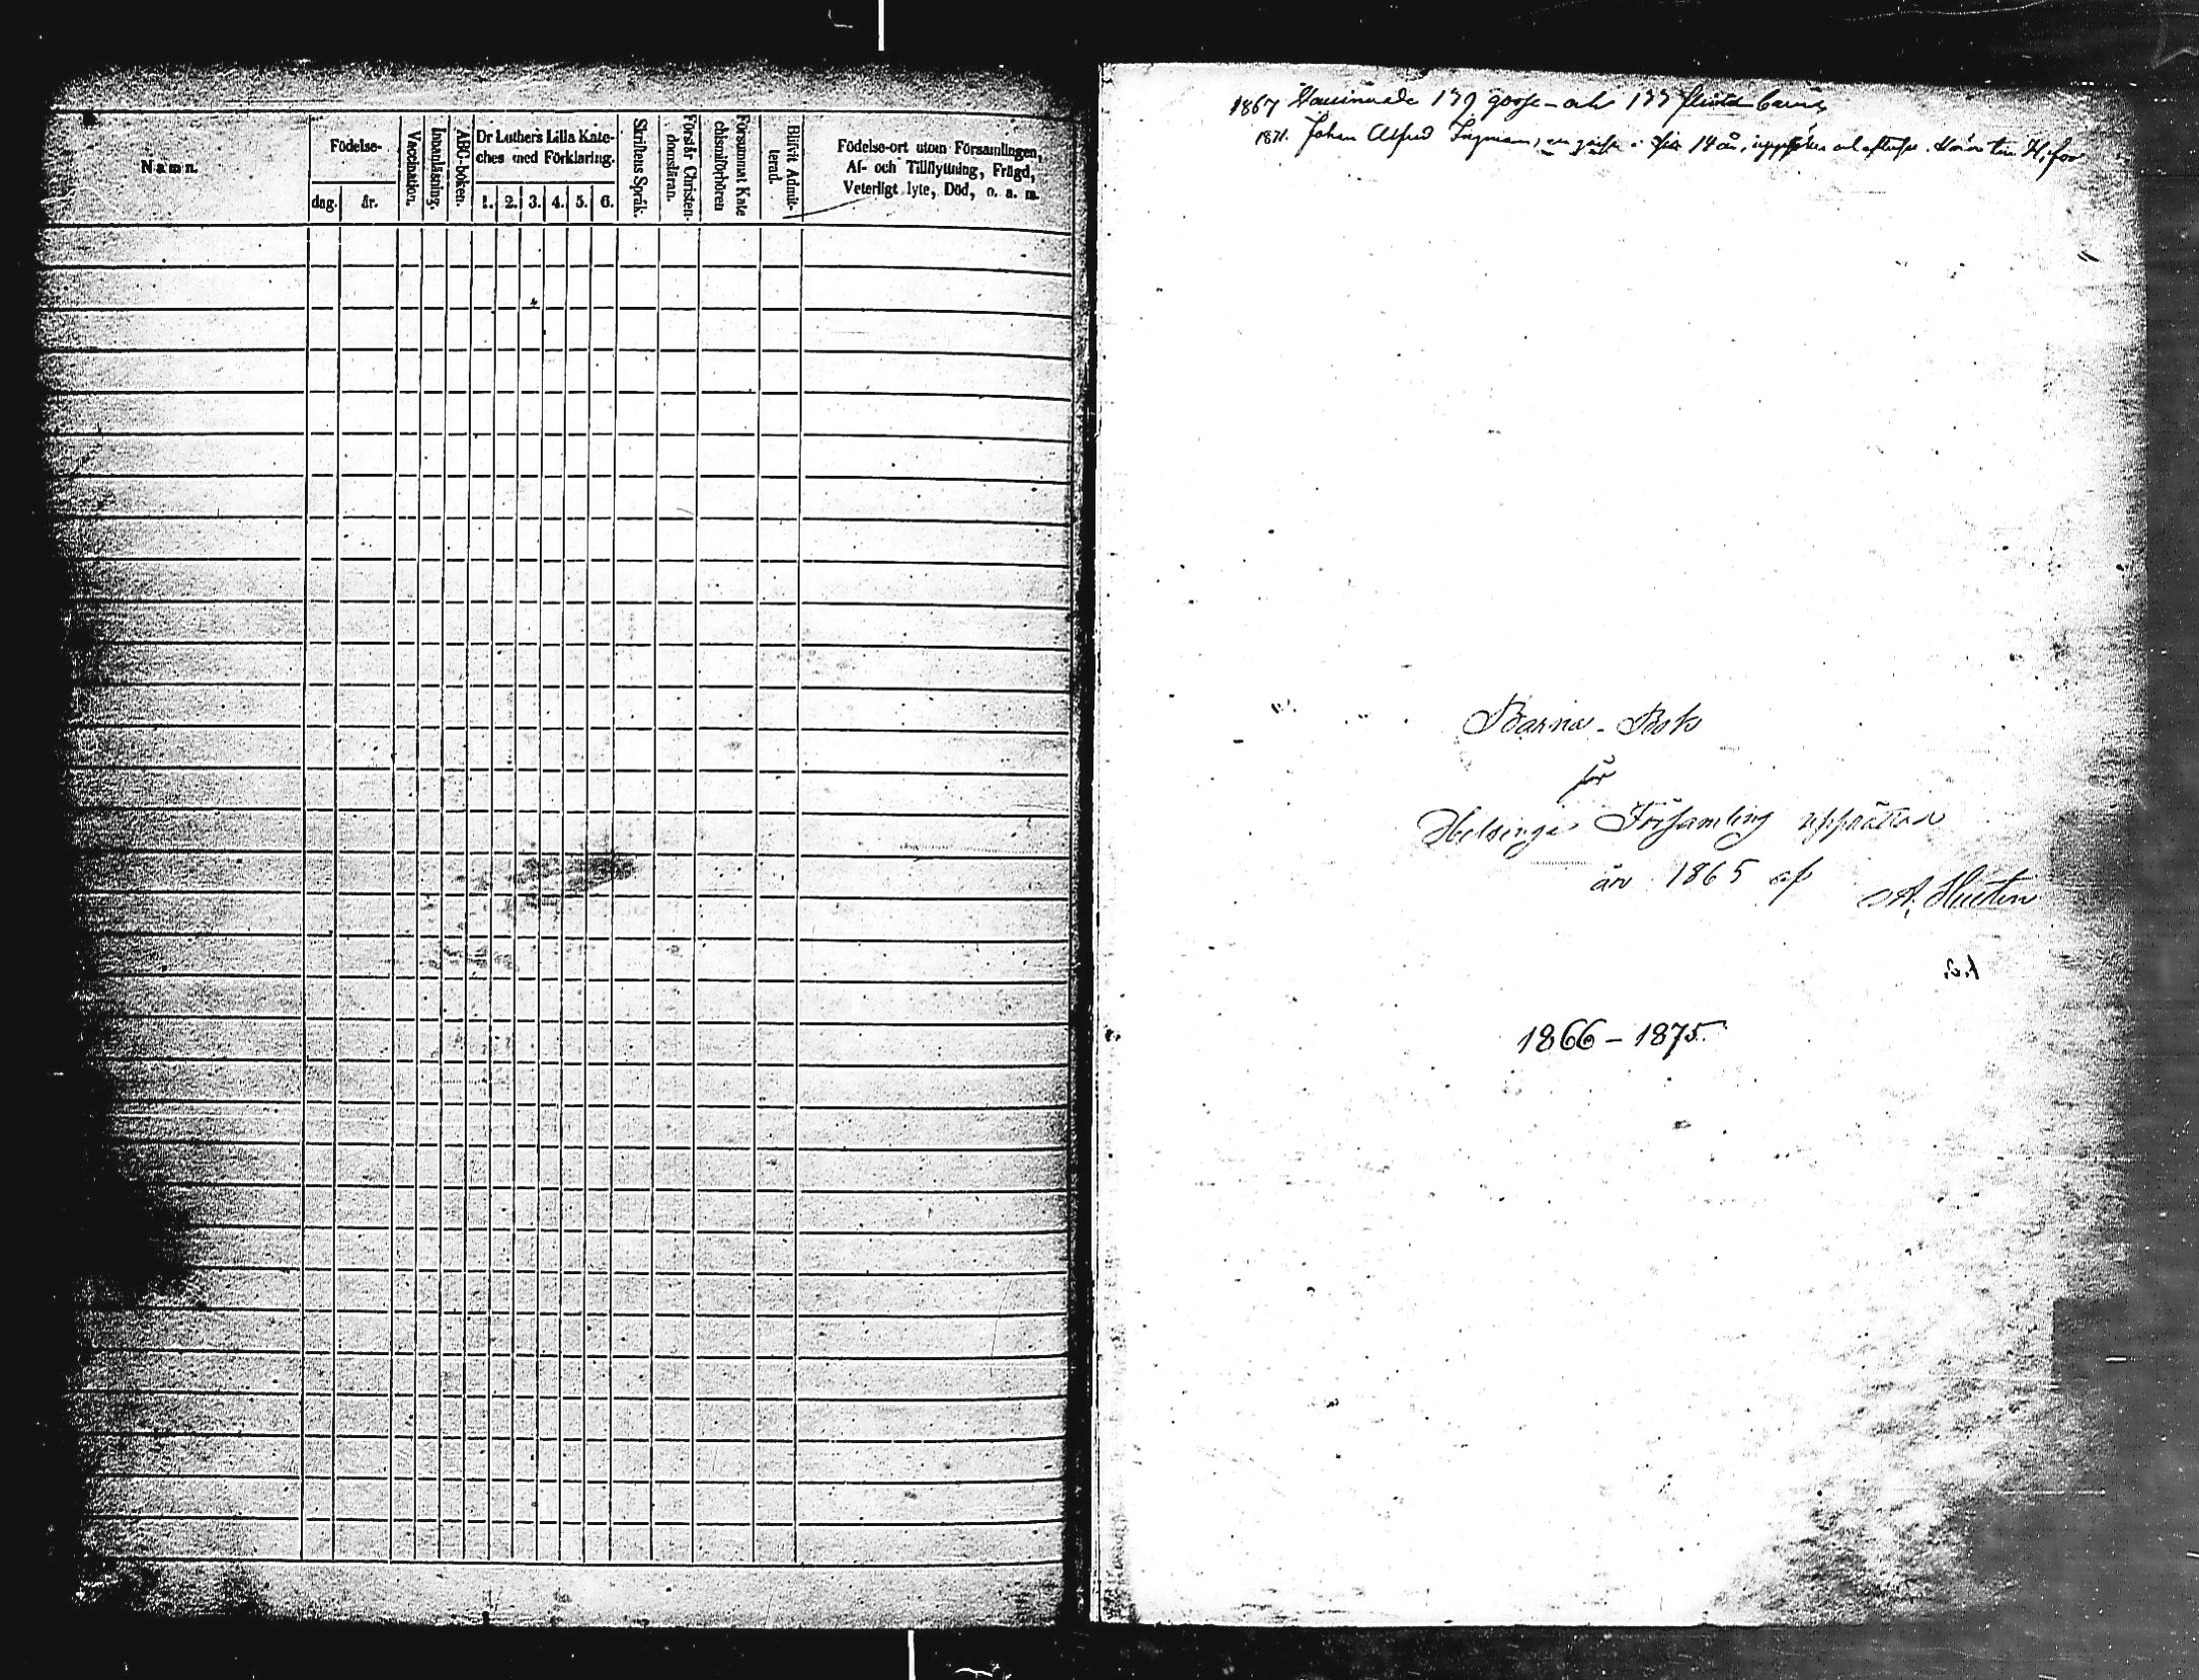 Namn.
Födelse-
dag.
år.
Vaccination.
Innanläsning.
ABC-boken.
Dr Luthers Lilla Kate-
ches med Förklaring.
1. 2. 3. 4. 5. 6.
Skriftens Språk.
Förstår Christen-
domsläran.
Försummat Kate
chismiförhören
Blifvit Admit-
terad.
Födelse-ort utom Församlingen,
Af- och Tillflyttning, Frägd,
Veterligt lyte, Död, o. a. m.
1867 139 gosse- och 133
1871. Johan Alfred Ingman, en gosse 14 år,
Barna-Bok
för
Helsinge Församling upprättad
år 1865 af
A.
1866-1875.